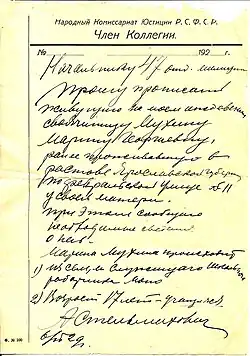 Народный Комиссариат Юстиции Р.С.Ф.С.Р.
Член Коллегии.
№ 192 г.
Начальнику 47 отд. милиции
Прошу прописать
живущую на моей
Мухину
Марину Георгиевну,
ранее проживавшую в
Ростове Ярославской губернии
по февральской улице д. 11
у своей матери.
При этом сообщаю
необходимые сведения
о ней.
Марина Мухина происходит
1) из семьи служащего
работника
2) Возраст 17 лет – учащаяся.
А Стельмахович
Ф. № 100